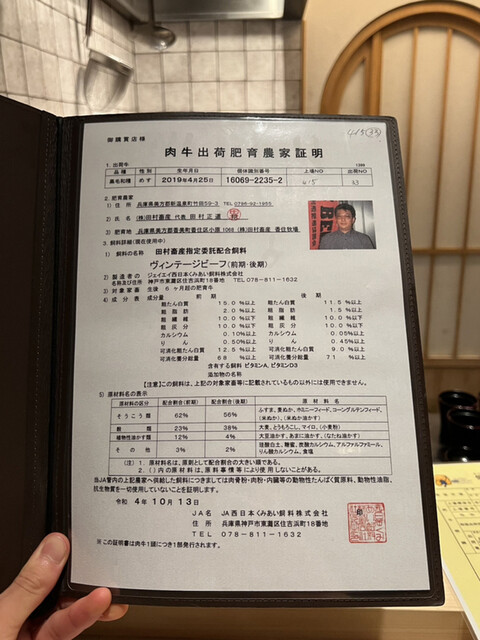 御購買店様
肉牛出荷肥育農家証明
1. 出荷牛
品種 性別 生年月日 個体識別番号 上場NO 出荷NO
黒毛和種 めす 2019年4月25日 16069-2235-2 415 33
2. 肥育農家
1) 住所 兵庫県美方郡新温泉町竹田59-3 TEL 0796-92-1955
2) 氏名 (株)田村畜産 代表 田村 正道
3) 肥育地 兵庫県美方郡香美町香住区小原1068 (株)田村畜産 香住牧場
3. 飼料詳細(現在使用中)
1) 飼料の名称 田村畜産指定委託配合飼料
ヴィンテージビーフ(前期・後期)
2) 製造者の名称及び住所 ジェイエイ西日本くみあい飼料株式会社
神戸市東灘区住吉浜町18番地 TEL 078-811-1632
3) 対象家畜 生後 6ヶ月起の肥育牛
4) 成分表 成分量 前期 後期
粗たん白質 15.0%以上 粗たん白質 11.5%以上
粗脂肪 2.0%以上 粗脂肪 1.5%以上
粗繊維 10.0%以下 粗繊維 10.0%以下
粗灰分 10.0%以下 粗灰分 10.0%以下
カルシウム 0.10%以上 カルシウム 0.05%以上
りん 0.50%以上 りん 0.45%以上
可消化粗たん白質 12.5%以上 可消化粗たん白質 9.0%以上
可消化養分総量 68 %以上 可消化養分総量 71 %以上
含有する飼料 ビタミンA, ビタミンD3
添加物の名称
【注意】この飼料は、上記の対象家畜等に記載されているもの以外には使用できません。
5) 原材料名の表示
原材料の区分 配合割合(前期) 配合割合(後期) 原材料名
そうこう類 62% 56% ふすま, 麦ぬか, ホミニーフィード, コーングルテンフィード, (米ぬか), (米ぬか油かす)
穀類 23% 38% 大麦, とうもろこし, マイロ, (小麦粉)
植物性油かす類 12% 4% 大豆油かす, あまに油かす, (なたね油かす)
その他 3% 2% 活酸白土, 糖蜜, 炭酸カルシウム, アルファルファミール, りん酸カルシウム, 食塩
(注) 1. 原材料名は、原則として配合割合の大きい順である。
2. ( )内の原材料は、原料事情等により使用しないことがある。
当JA管内の上記農家へ供給した飼料につきましては肉骨粉・肉粉・内臓等の動物性たんぱく質原料, 動物性油脂,
抗生物質を一切使用していないことを証明します。
令和 4年10月13日
JA名 JA西日本くみあい飼料株式会社
住所 兵庫県神戸市東灘区住吉浜町18番地
TEL 078-811-1632
印
※この証明書は肉牛1頭につき1部発行されます。